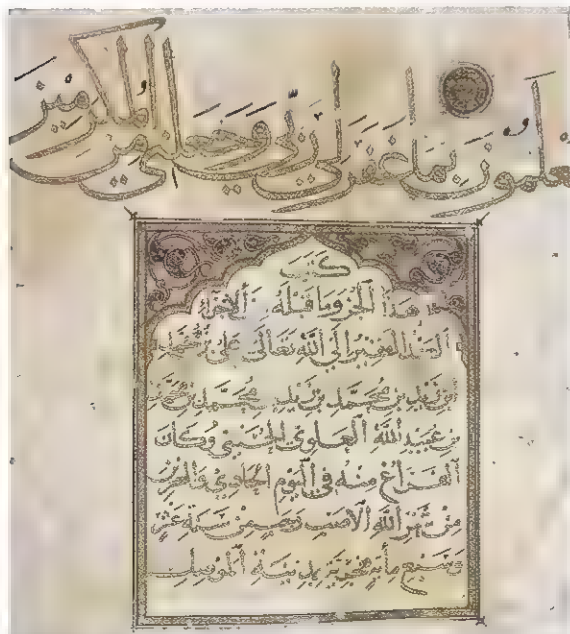 يعلمون بما غفر لي ربي وجعلني من المكرمين
كتب
هذا الجزو وما قبله من الاجزاء
العبد الفقير الى الله تعالى علي بن محمد
بن زيد بن محمد بن زيد بن محمد بن
بن عبيد الله العلوي الحسيني وكان
الفراغ منه في اليوم الحادي
من شهر الله الاصب سنة عشر
وسبع مائة هجرية بمدينة الموصل